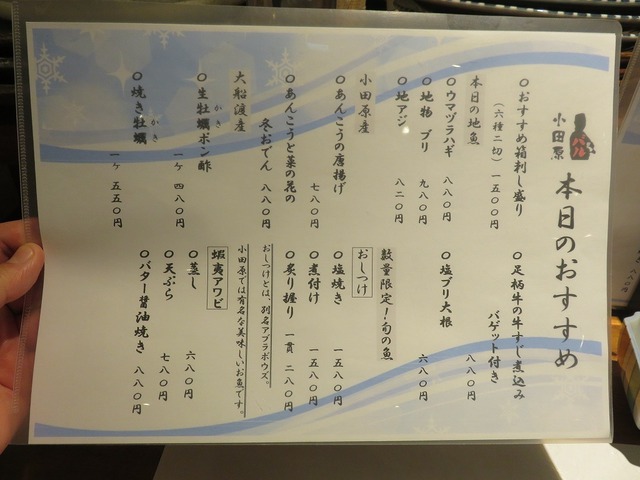 小田原
本日のおすすめ
○おすすめ箱刺し盛り
(六種二切) 一五〇〇円
本日の地魚
○ウマヅラハギ 八八〇円
○地物 ブリ 九八〇円
○地アジ 八二〇円
小田原産
○あんこうの唐揚げ
七八〇円
○あんこうと菜の花の
冬おでん 八八〇円
大船渡産
○生牡蠣ポン酢
かき
一ヶ 四八〇円
○焼き牡蠣
かき
一ヶ 五五〇円
○足柄牛の牛すじ煮込み
バゲット付き
八八〇円
○塩ブリ大根
六八〇円
数量限定!旬の魚
おしつけ
○塩焼き 一五八〇円
○煮付け 一五八〇円
○炙り握り 一貫 二八〇円
おしつけとは、別名アブラボウズ。
小田原では有名な美味しいお魚です。
蝦夷アワビ
○蒸し 六八〇円
○天ぷら 七八〇円
○バター醤油焼き 八八〇円